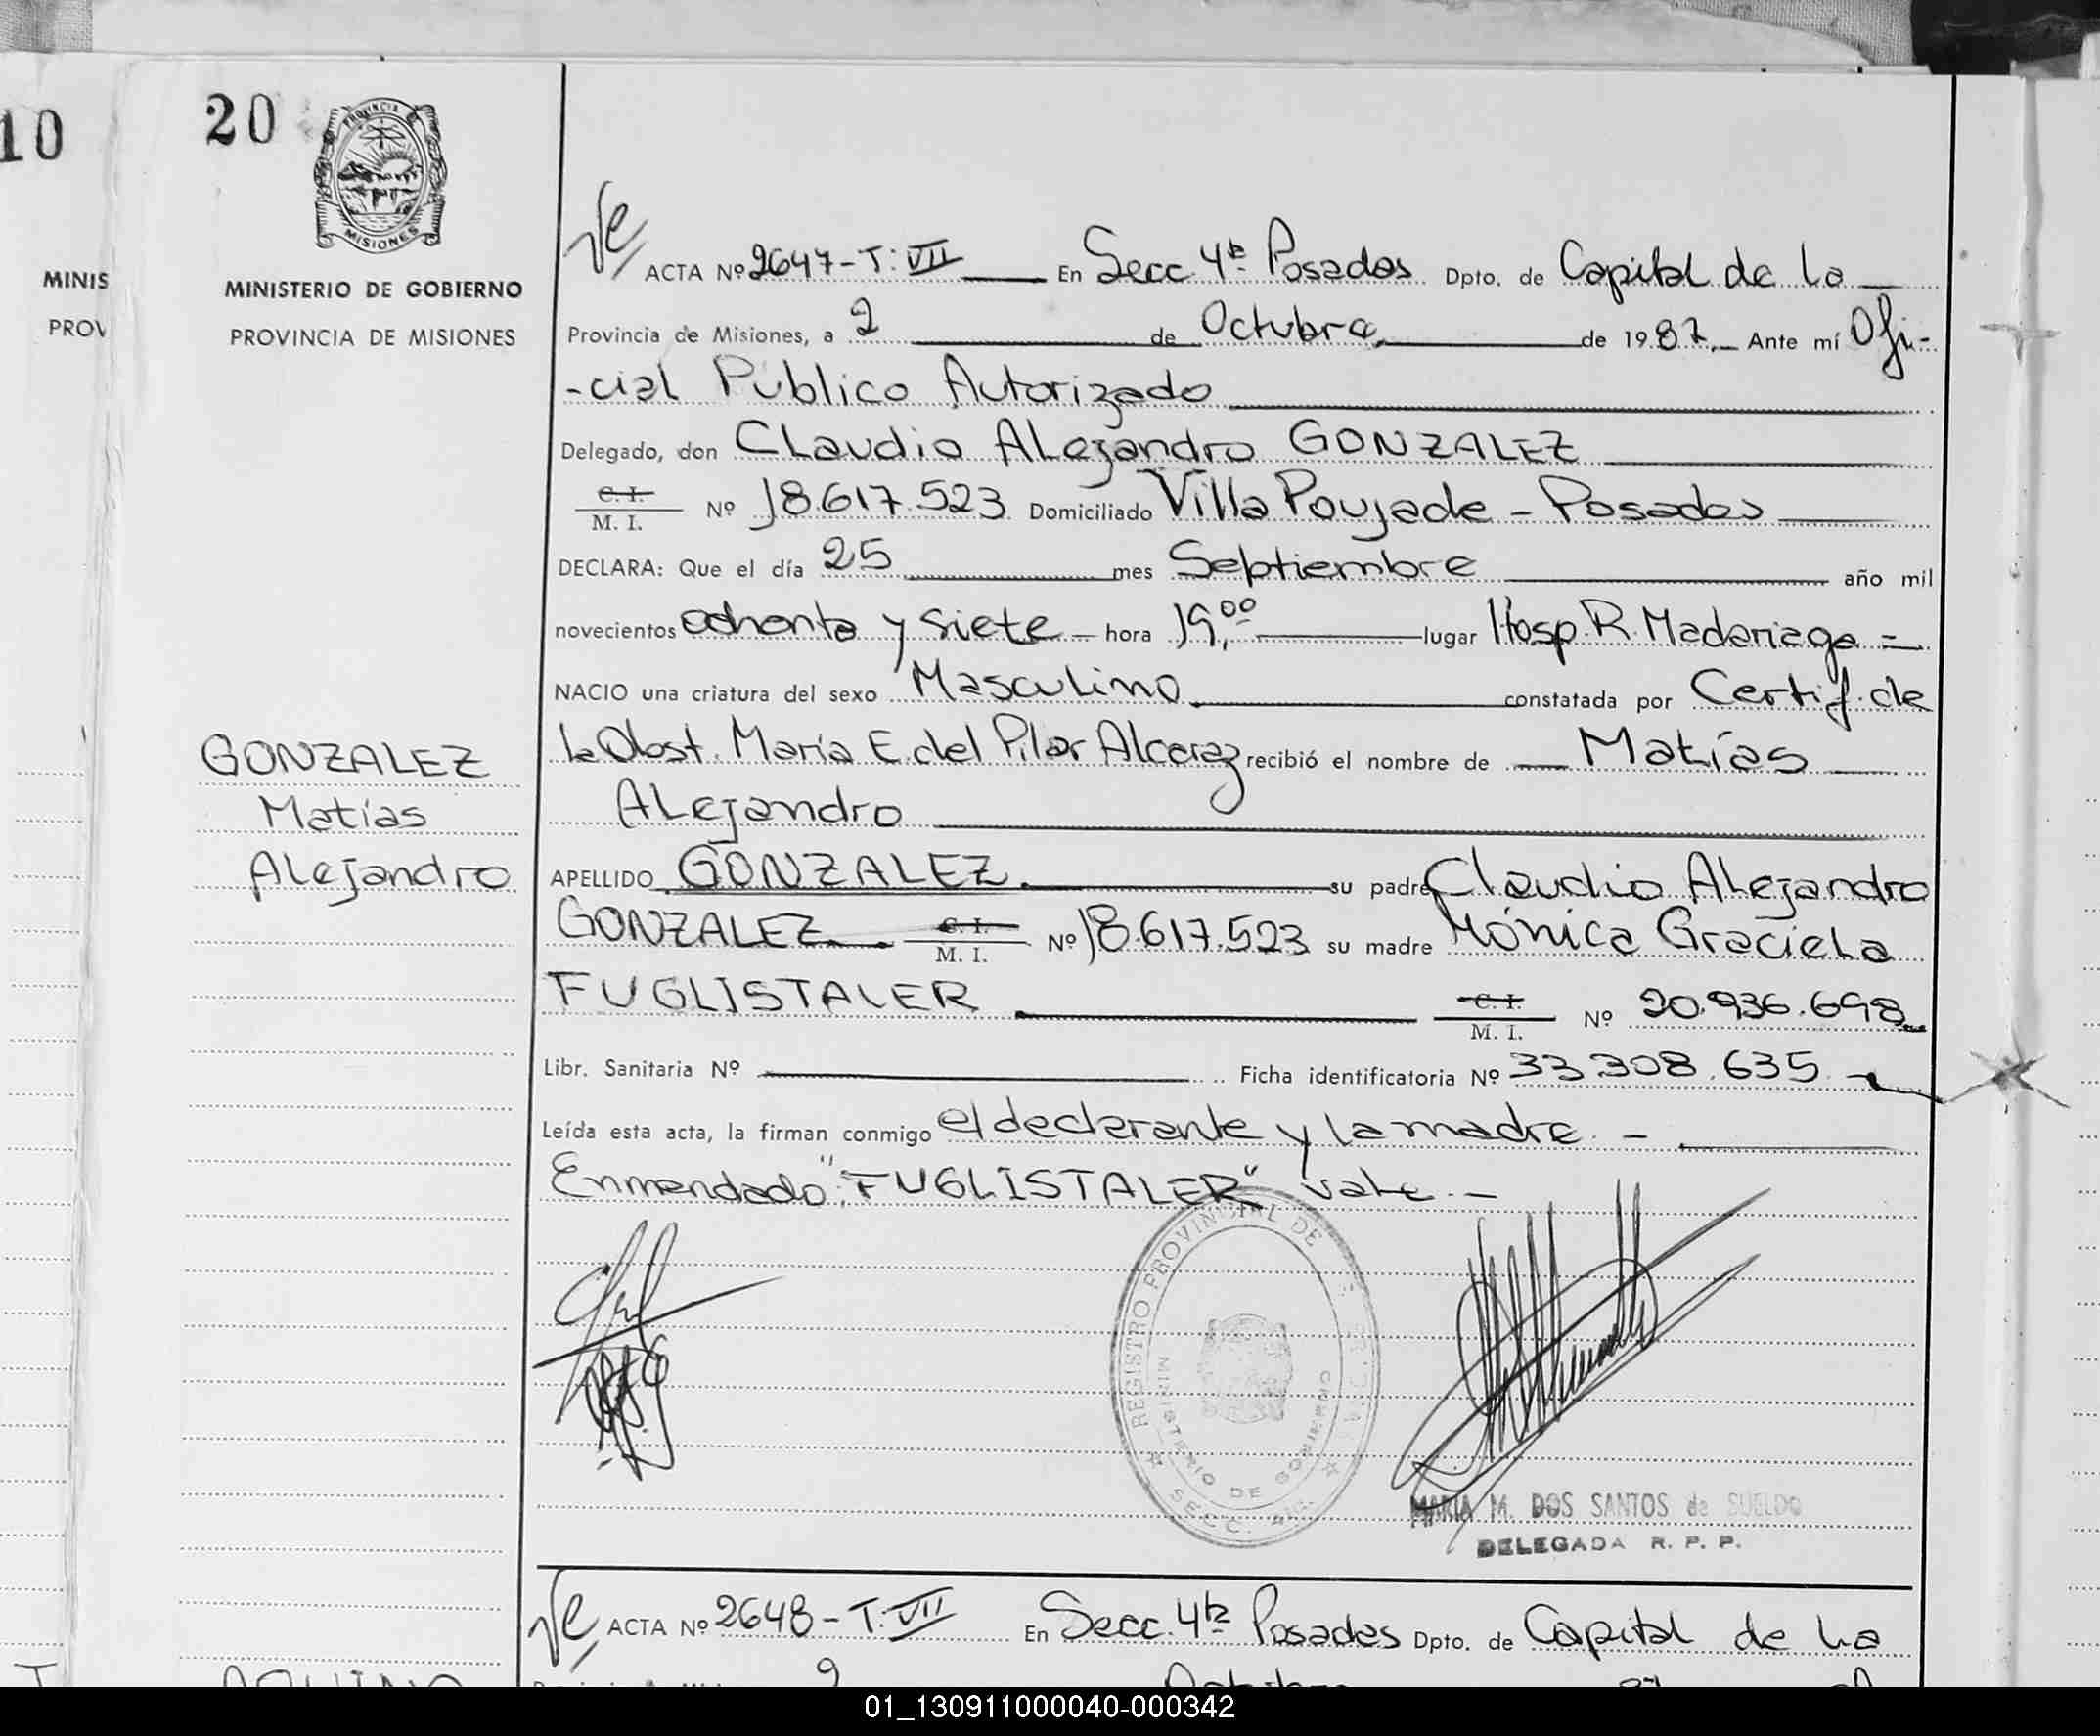 10
20
PROVINCIA
MISIONES
MINIS
PROV
MINISTERIO DE GOBIERNO
PROVINCIA DE MISIONES
ACTA Nº 2647-T: VII En Secc. 4ta Posadas Dpto. de Capital de la
Provincia de Misiones, a 2 de Octubre, de 1987,- Ante mí Ofi-
-cial Público Autorizado
Delegado, don Claudio Alejandro GONZALEZ
C. I.
M. I. Nº 18.617.523 Domiciliado Villa Poujade - Posadas
DECLARA: Que el día 25 mes Septiembre año mil
novecientos ochenta y siete - hora 19,00 lugar Hosp. R. Madariaga =
NACIO una criatura del sexo Masculino constatada por Certif. de
la Obst. María E. del Pilar Alcaraz recibió el nombre de Matías
Alejandro
GONZALEZ
Matías
Alejandro
APELLIDO GONZALEZ. su padre Claudio Alejandro
GONZALEZ C. I.
M. I. Nº 18.617.523 su madre Mónica Graciela
FUGLISTALER C. I.
M. I. Nº 20.936.698
Libr. Sanitaria Nº Ficha identificatoria Nº 33.308.635
Leída esta acta, la firman conmigo el declarante y la madre. -
Enmendado: "FUGLISTALER" vale. -
REGISTRO PROVINCIAL DE
MINISTERIO DE GOBIERNO
SECC. 4ta.
MARIA M. DOS SANTOS de SUELDO
DELEGADA R. P. P.
ACTA Nº 2648-T: VII En Secc. 4ta Posadas Dpto. de Capital de la
01_130911000040-000342